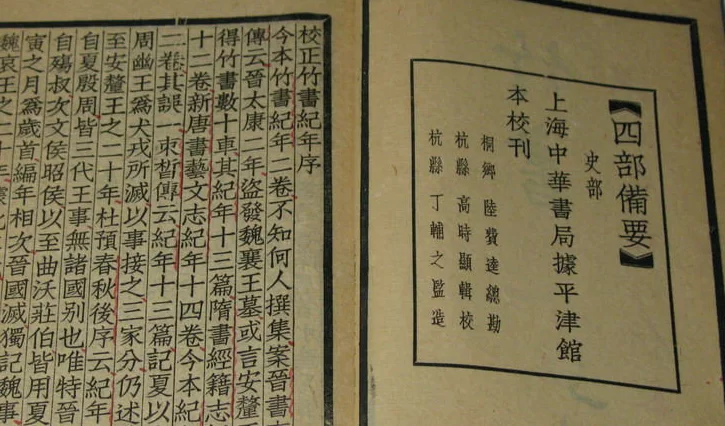 【四部備要】
史部
上海中華書局據平津館
本校刊
桐鄉 陸費逵總勘
杭縣 高時顯輯校
杭縣 丁輔之監造
校正竹書紀年序
今本竹書紀年二卷不知何人撰集案晉書
傳云晉太康二年盜發魏襄王墓或言安釐
得竹書數十車其紀年十三篇隋書經籍志
十二卷新唐書藝文志紀年十四卷今本紀
二卷其誤一束晳傳云紀年十三篇記夏以
周幽王爲犬戎所滅以事接之三家分仍述
至安釐王之二十年杜預春秋後序云紀年
自夏殷周皆三代王事無諸國别也唯特晉
自殤叔次文侯昭侯以至曲沃莊伯皆用夏
寅之月爲歲首編年相次晉國滅獨記魏事
魏哀王之二十年